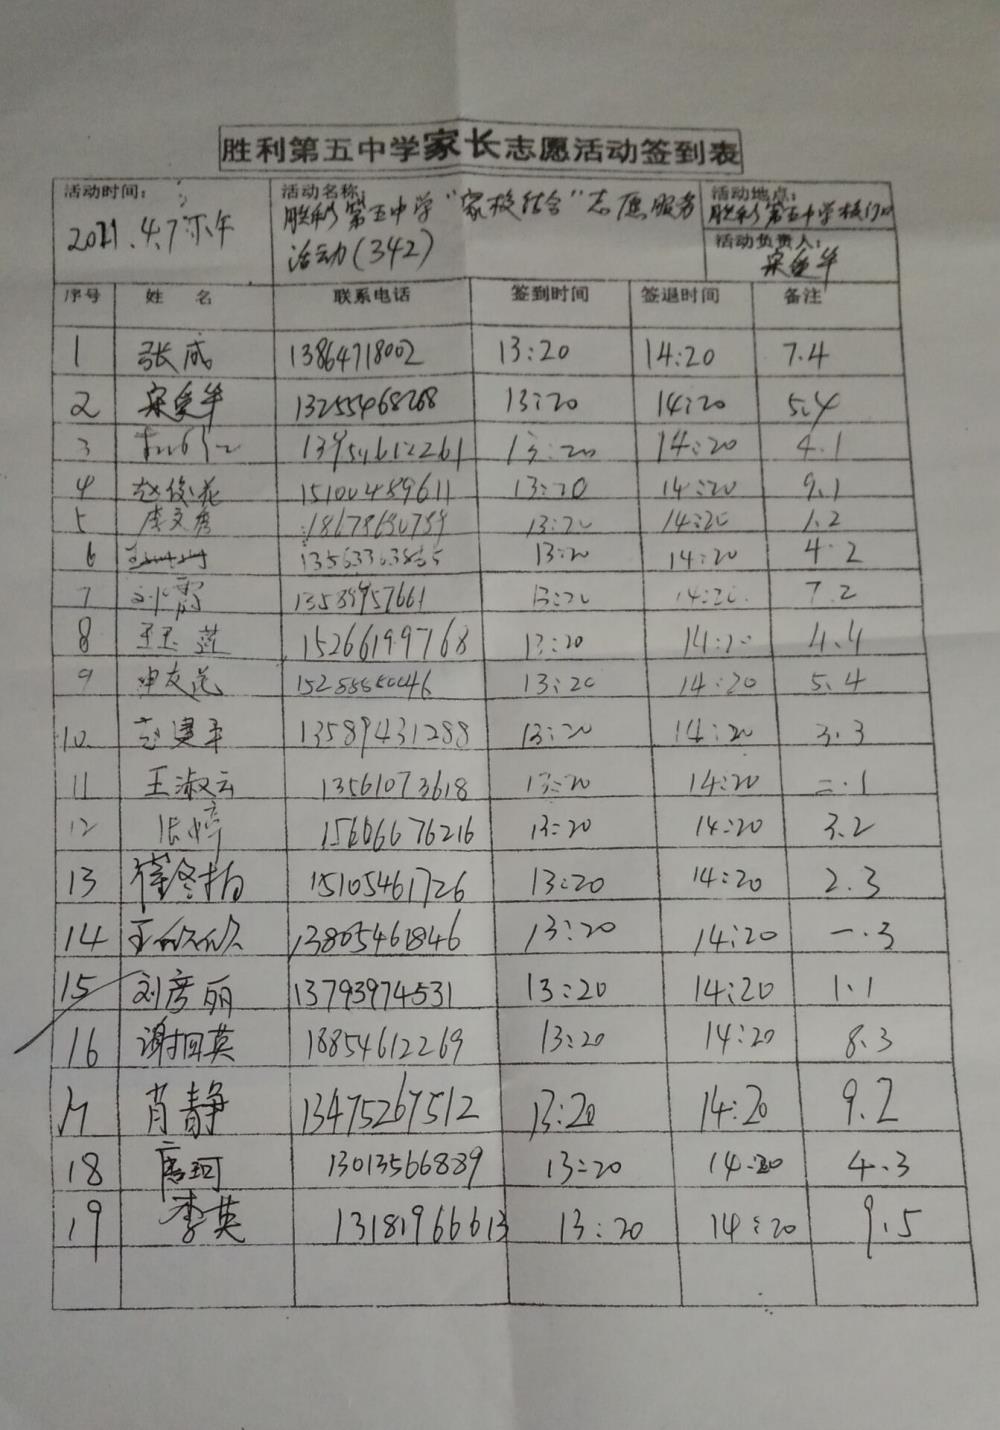 胜利第五中学家长志愿活动签到表
活动时间:
2021.4.7下午
活动名称:
胜利第五中学“家校结合”志愿服务
活动(342)
活动地点:
胜利第五中学校门口
活动负责人:
宋爱华
序号 姓 名 联系电话 签到时间 签退时间 备注
1 张成 13864718002 13:20 14:20 7.4
2 宋爱华 13255468268 13:20 14:20 5.4
3 13954612261 13:20 14:20 4.1
4 赵俊花 15100459611 13:20 14:20 9.1
5 李文秀 18678630789 13:20 14:20 1.2
6 13:20 14:20 4.2
7 刘霞 13589957661 13:20 14:20 7.2
8 王玉莲 15266199768 13:20 14:20 4.4
9 13:20 14:20 5.4
10 13589431288 13:20 14:20 3.3
11 王淑云 13561073618 13:20 14:20 二.1
12 张婷 15606676216 13:20 14:20 3.2
13 15105461726 13:20 14:20 2.3
14 王欣欣 13805461846 13:20 14:20 一.3
15 刘彦丽 13793974531 13:20 14:20 1.1
16 谢田英 18854612269 13:20 14:20 8.3
17 肖静 13475267512 13:20 14:20 9.2
18 唐珂 13013566889 13:20 14:20 4.3
19 李英 13181966613 13:20 14:20 9.5